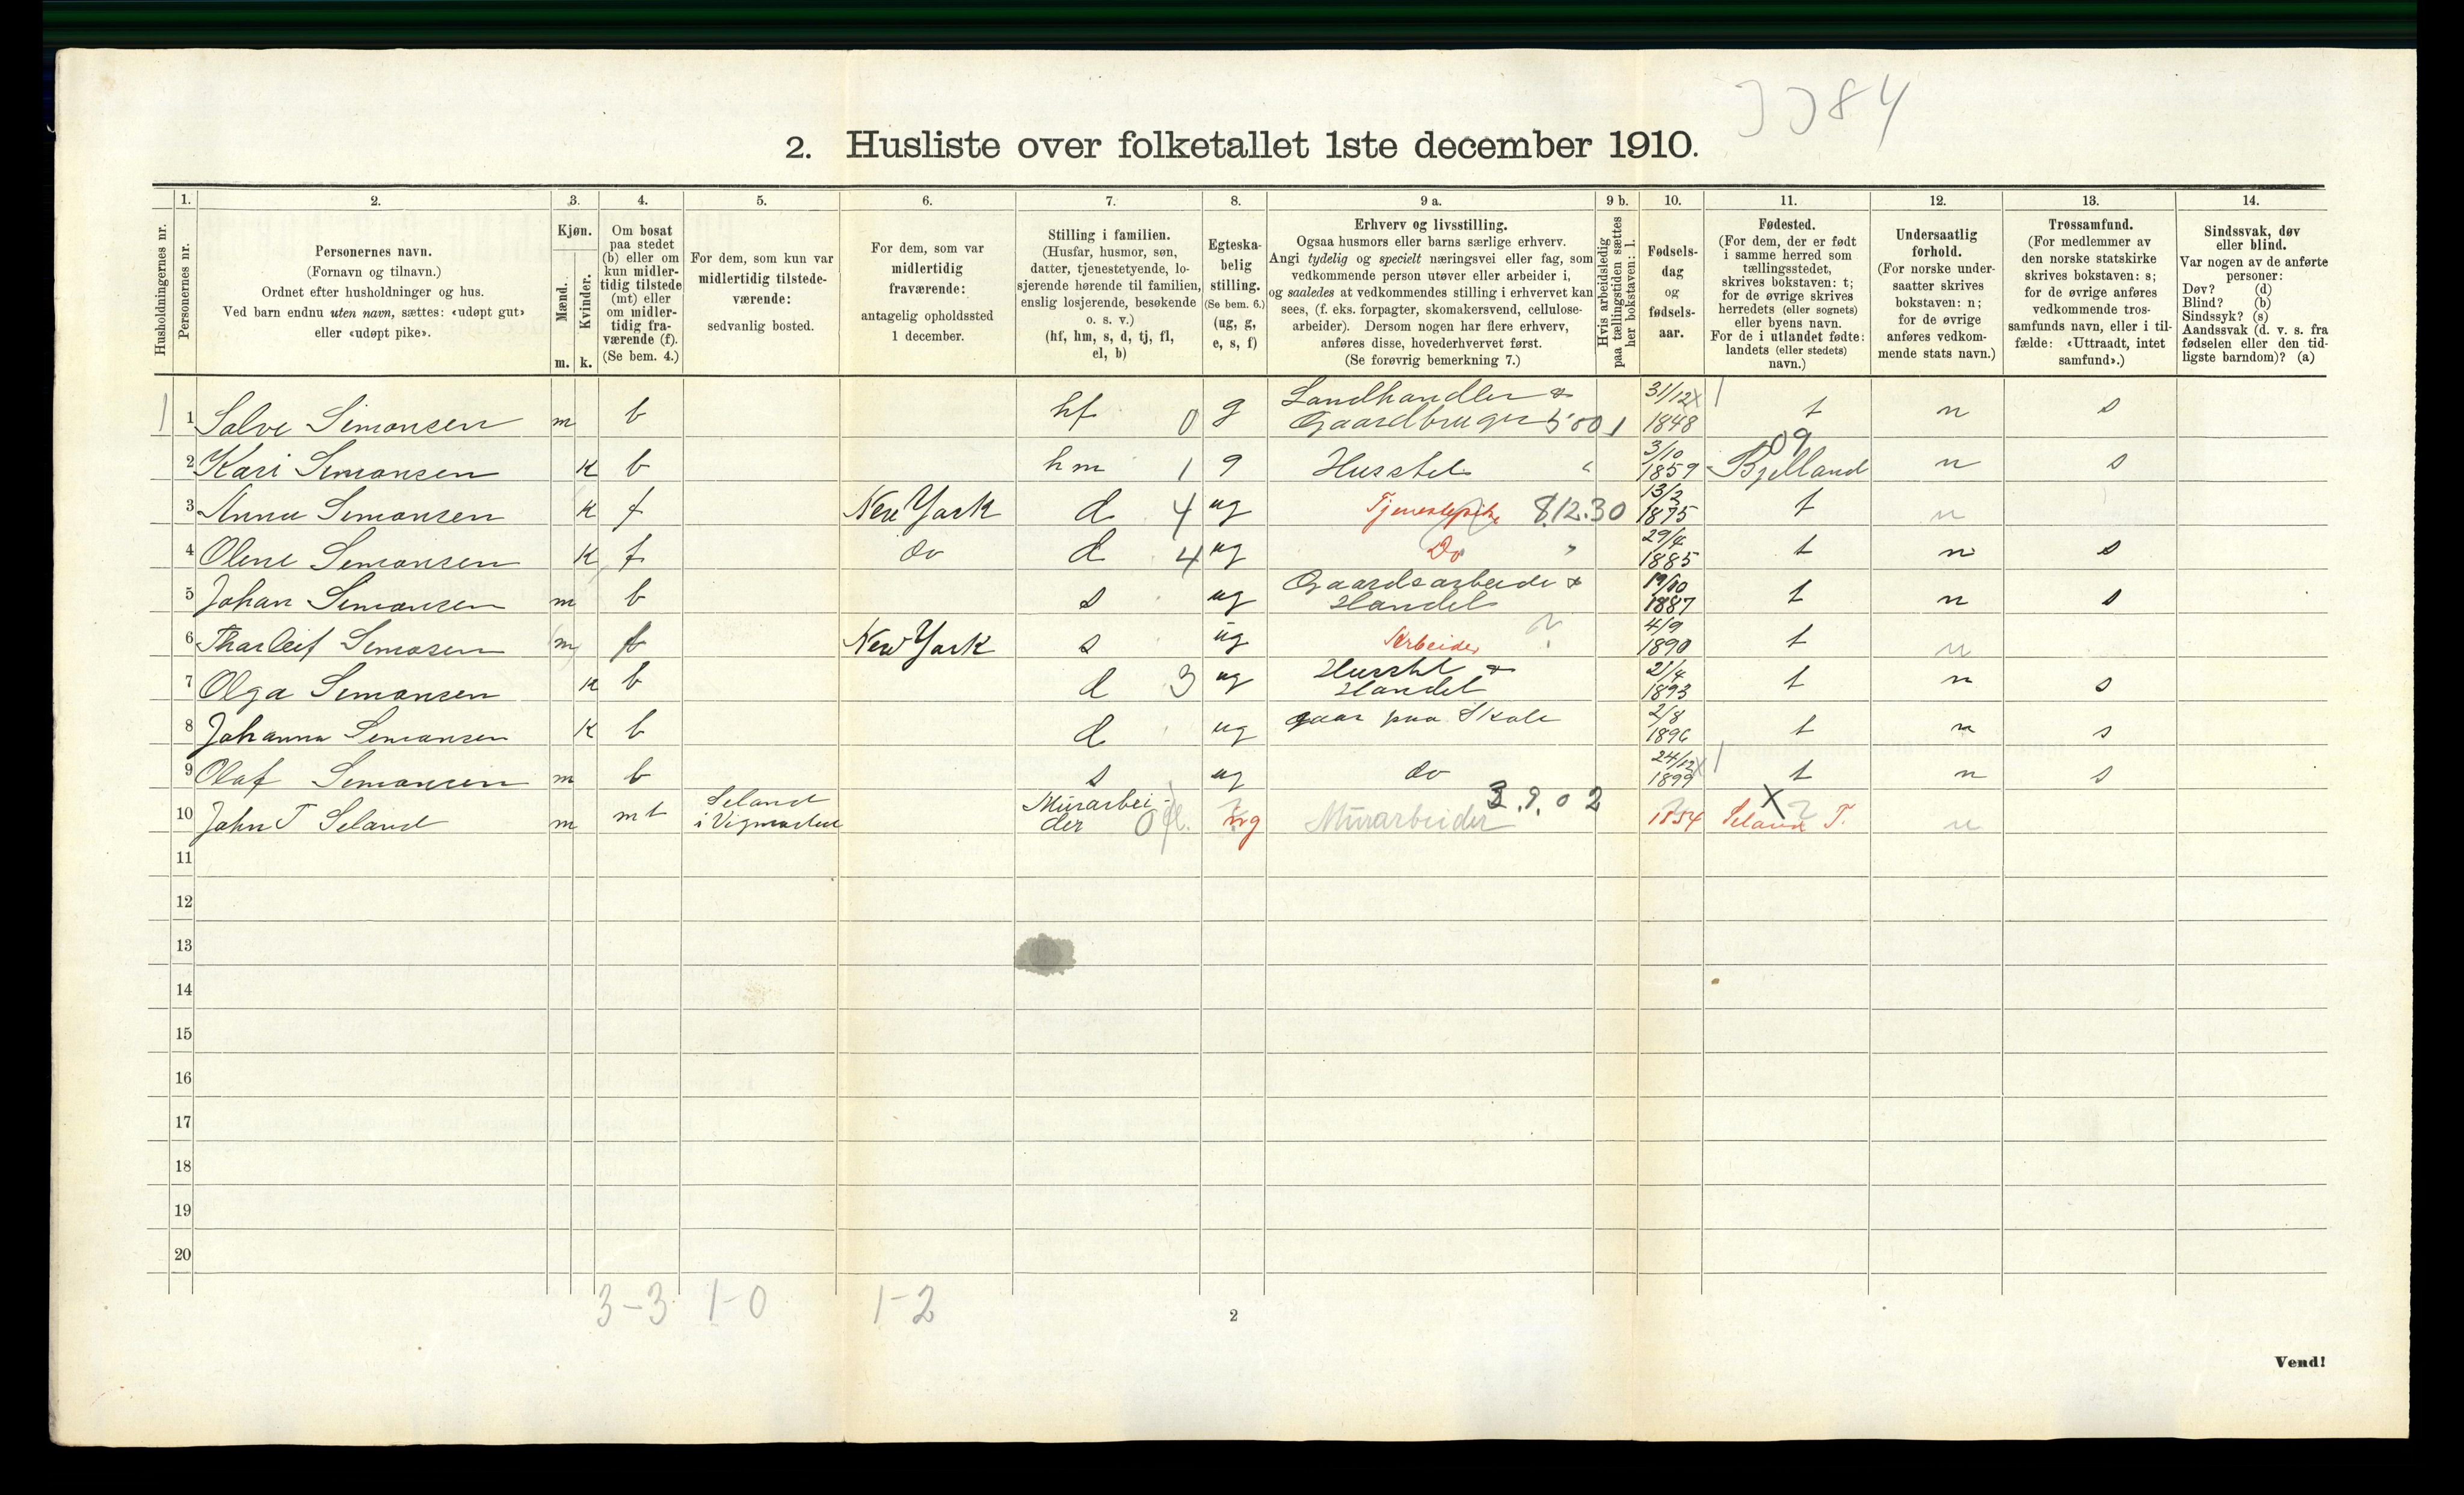 3384
2. Husliste over folketallet 1ste december 1910.
1. 2. 3. 4. 5. 6. 7. 8. 9 a. 9 b. 10. 11. 12. 13. 14.
Husholdningernes nr.
Personernes nr.
Personernes navn.
(Fornavn og tilnavn.)
Ordnet efter husholdninger og hus.
Ved barn endnu uten navn, sættes: «udøpt gut»
eller «udøpt pike».
Kjøn.
Mænd.
Kvinder.
m. k.
Om bosat
paa stedet
(b) eller om
kun midler-
tidig tilstede
(mt) eller
om midler-
tidig fra-
værende (f).
(Se bem. 4.)
For dem, som kun var
midlertidig tilstede-
værende:
sedvanlig bosted.
For dem, som var
midlertidig
fraværende:
antagelig opholdssted
1 december.
Stilling i familien.
(Husfar, husmor, søn,
datter, tjenestetyende, lo-
sjerende hørende til familien,
enslig losjerende, besøkende
o. s. v.)
(hf, hm, s, d, tj, fl,
el, b)
Egteska-
belig
stilling.
(Se bem. 6.)
(ug, g,
e, s, f)
Erhverv og livsstilling.
Ogsaa husmors eller barns særlige erhverv.
Angi tydelig og specielt næringsvei eller fag, som
vedkommende person utøver eller arbeider i,
og saaledes at vedkommendes stilling i erhvervet kan
sees, (f. eks. forpagter, skomakersvend, cellulose-
arbeider). Dersom nogen har flere erhverv,
anføres disse, hovederhvervet først.
(Se forøvrig bemerkning 7.)
Hvis arbeidsledig
paa tællingstiden sættes
her bokstaven: l.
Fødsels-
dag
og
fødsels-
aar.
Fødested.
(For dem, der er født
i samme herred som
tællingsstedet,
skrives bokstaven: t;
for de øvrige skrives
herredets (eller sognets)
eller byens navn.
For de i utlandet fødte:
landets (eller stedets)
navn.)
Undersaatlig
forhold.
(For norske under-
saatter skrives
bokstaven: n;
for de øvrige
anføres vedkom-
mende stats navn.)
Trossamfund.
(For medlemmer av
den norske statskirke
skrives bokstaven: s;
for de øvrige anføres
vedkommende tros-
samfunds navn, eller i til-
fælde: «Uttraadt, intet
samfund».)
Sindssvak, døv
eller blind.
Var nogen av de anførte
personer:
Døv? (d)
Blind? (b)
Sindssyk? (s)
Aandssvak (d. v. s. fra
fødselen eller den tid-
ligste barndom)? (a)
1 1 Salve Simonsen m b hf 0 g Landhandler & Gaardbruger 5001 31/12 1848 t n s
2 Kari Simonsen K b hm 1 g Husstel " 3/10 1859 Bjelland 09 n s
3 Anna Simonsen K f New York d 4 ug Tjenestepike 812.30 13/2 1875 t n
4 Olene Simonsen K f do d 4 ug Do " 29/4 1885 t n s
5 Johan Simonsen m b s ug Gaardsarbeide & Handel 19/10 1887 t n s
6 Tharleif Simosen m f New York s ug Arbeider ? 4/9 1890 t n
7 Olga Simonsen K b d 3 ug Husstel & Handel 21/4 1893 t n s
8 Johanna Simonsen K b d ug gaar paa Skole 2/8 1896 t n s
9 Olaf Simonsen m b s ug do 24/12 1899 t n s
10 John T Seland m mt Seland i Vigmostad Murarbeider 0 ug Murarbeider 3.9.02 1854 Seland T. n
11
12
13
14
15
16
17
18
19
20
3-3 1-0 1-2
2
Vend!